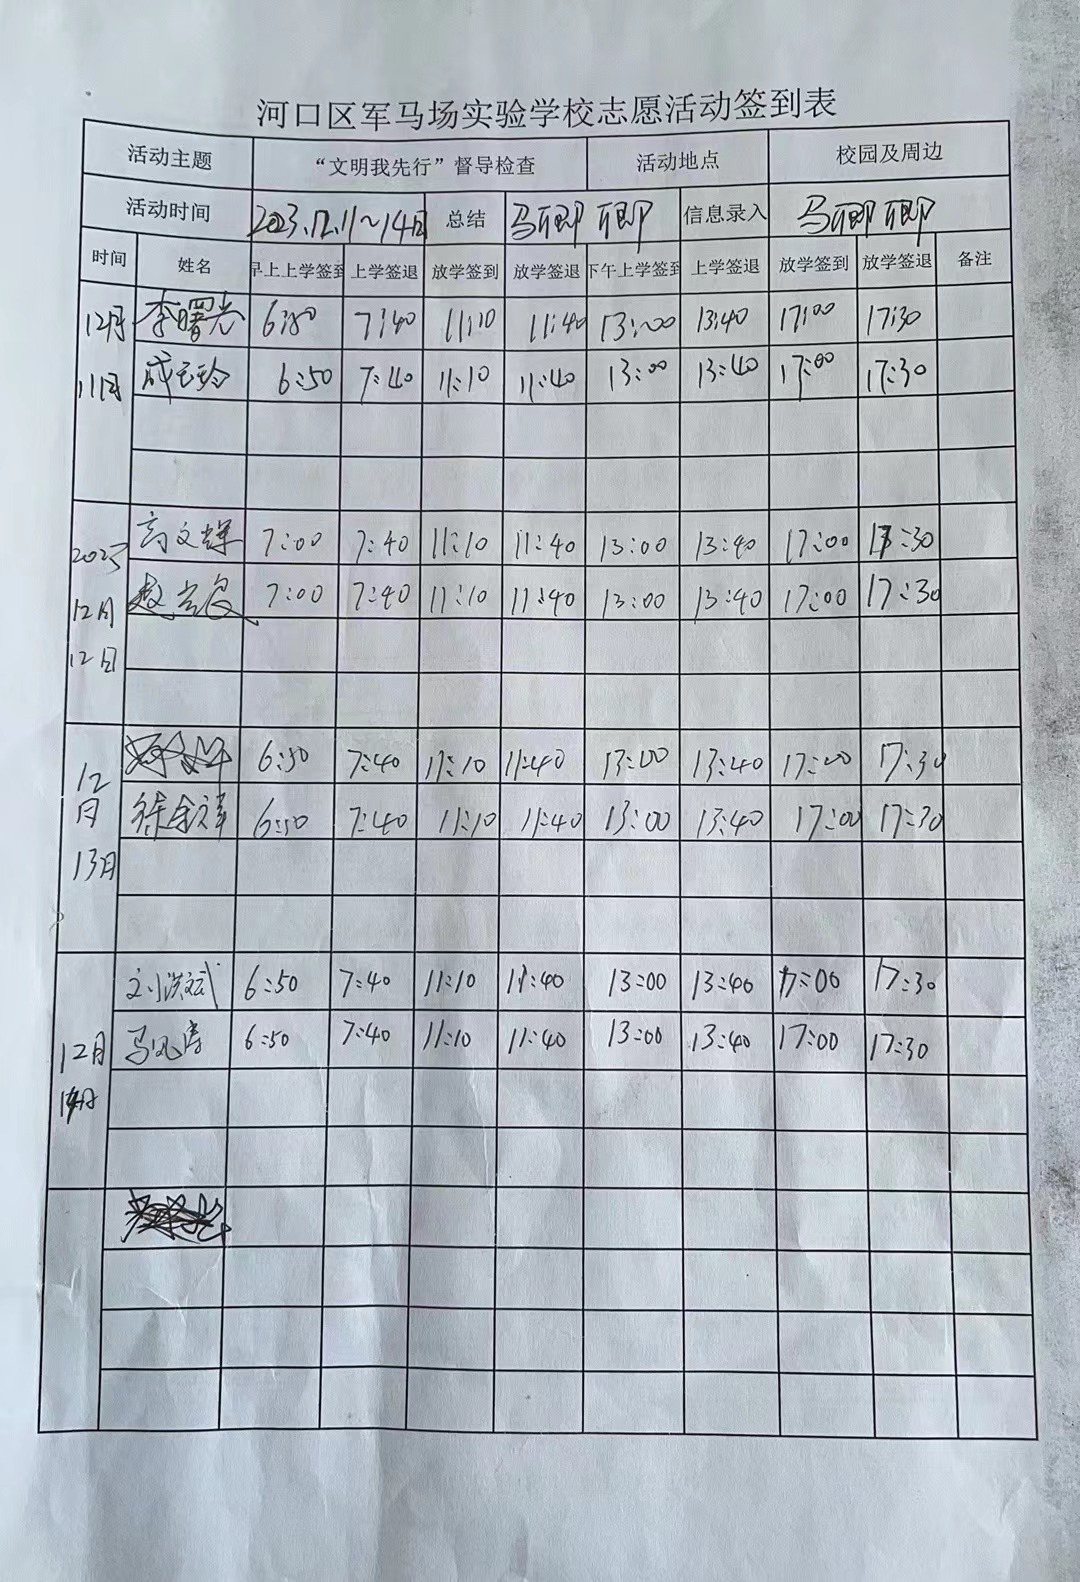 河口区军马场实验学校志愿活动签到表
活动主题 “文明我先行”督导检查 活动地点 校园及周边
活动时间 2023.12.11~14日 总结 信息录入
时间 姓名 早上上学签到 上学签退 放学签到 放学签退 下午上学签到 上学签退 放学签到 放学签退 备注
12月 李曙光 7:40 11:10 11:40 13:00 13:40 17:00 17:30
11日 6:50 7:40 11:10 11:40 13:00 13:40 17:00 17:30
高文辉 7:00 7:40 11:10 11:40 13:00 13:40 17:00 17:30
7:00 7:40 11:10 11:40 13:00 13:40 17:00 17:30
12月
12日
6:50 7:40 11:10 11:40 13:00 13:40 17:00 17:30
12
月
13日
6:50 7:40 11:10 11:40 13:00 13:40 17:00 17:30
刘洪斌 6:50 7:40 11:10 11:40 13:00 13:40 17:00 17:30
12月 马风涛 6:50 7:40 11:10 11:40 13:00 13:40 17:00 17:30
14日